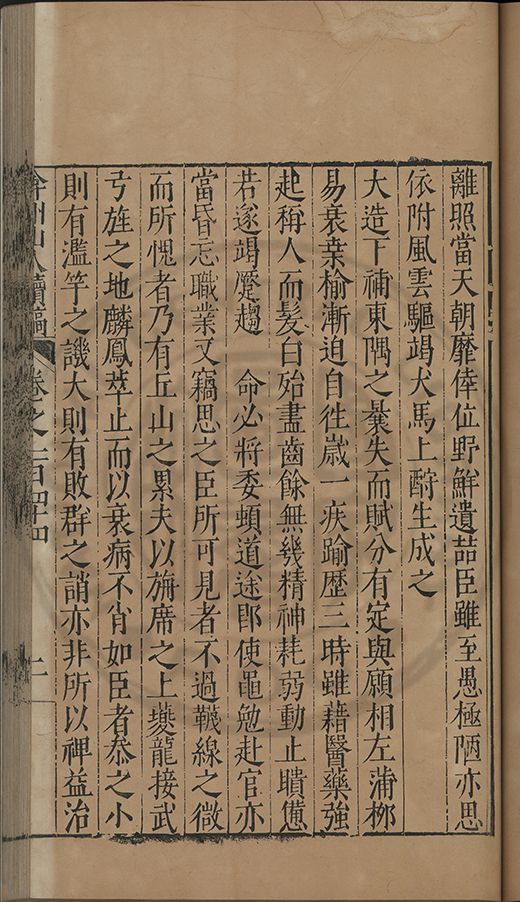 離照當天朝靡倖位野鮮遺喆臣雖至愚極陋亦思
依附風雲驅竭犬馬上酧生成之
大造下補東隅之曩失而賦分有定與願相左蒲桺
易衰桒榆漸迫自徃嵗一疾踰歴三時雖藉醫藥強
起稱人而髮白殆盡齒餘無幾精神耗弱動止瞶憊
若遂竭蹷趨　命必將委頓道途郎使黽勉赴官亦
當昏忘職業又竊思之臣所可見者不過韈線之微
而所愧者乃有丘山之累夫以旃席之上夔龍接武
弓旌之地麟鳳萃止而以衰病不肖如臣者忝之小
則有濫竽之譏大則有敗群之誚亦非所以裨益治
弇州山人續稿 卷之一百四十四 二